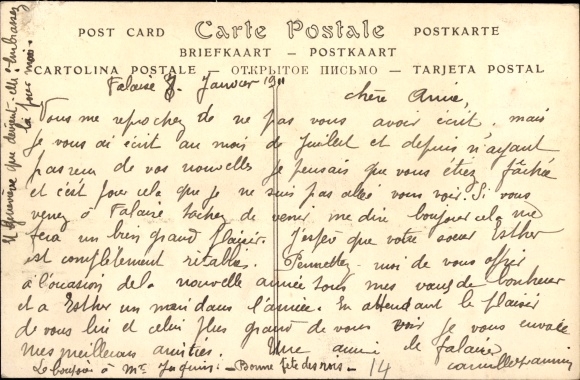 POST CARD Carte Postale POSTKARTE
BRIEFKAART — POSTKAART
CARTOLINA POSTALE — ОТКРЫТОЕ ПИСЬМО — TARJETA POSTAL
Falaise 8. Janvier 1911
Chère Anne,
Vous me reprochez de ne pas vous avoir écrit, mais
je vous ai écrit au mois de Juillet et depuis n'ayant
pas reçu de vos nouvelles je pensais que vous étiez fâchée
et c'est pour cela que je ne suis pas allé vous voir. Si vous
venez à Falaise tachez de venir me dire bonjour cela me
fera un bien grand plaisir. J'espère que votre soeur Esther
est complètement rétablie. Permettez-moi de vous offrir
à l'occasion de la nouvelle année tous mes voeux de bonheur
et a Esther un mari dans l'année. En attendant le plaisir
de vous lire et celui plus grand de vous voir je vous envoie
mes meilleures amitiés. Une amie de Falaise
Le bonjour à Mr - Bonne fête des rois - 14
Et Geneviève que devient-elle? Embrassez
la pour moi.